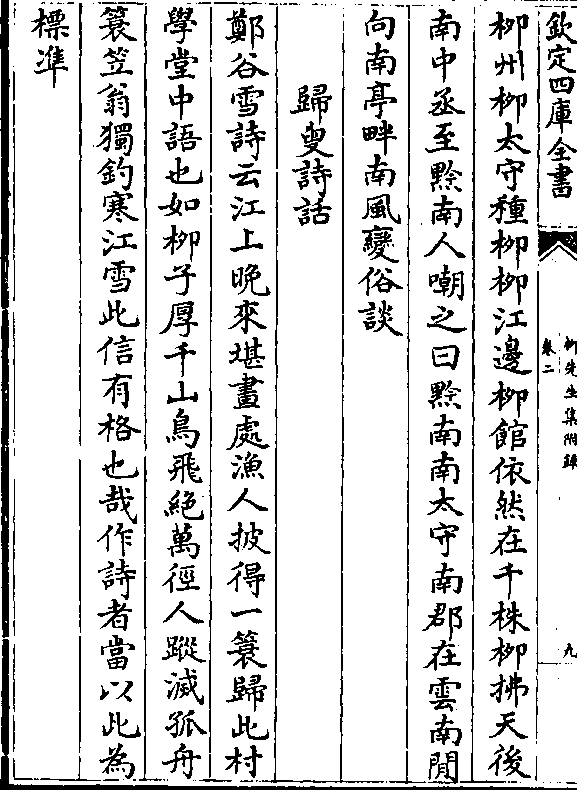 欽定四庫全書
柳先生集附錄
卷二
九
柳州柳太守種柳柳江邊柳館依然在千株柳拂天後
南中丞至黔南人嘲之曰黔南南太守南郡在雲南閒
向南亭畔南風變俗談
歸叟詩話
鄭谷雪詩云江上晚來堪畫處漁人披得一簑歸此村
學堂中語也如柳子厚千山鳥飛絕萬徑人蹤滅孤舟
簑笠翁獨釣寒江雪此信有格也哉作詩者當以此為
標準